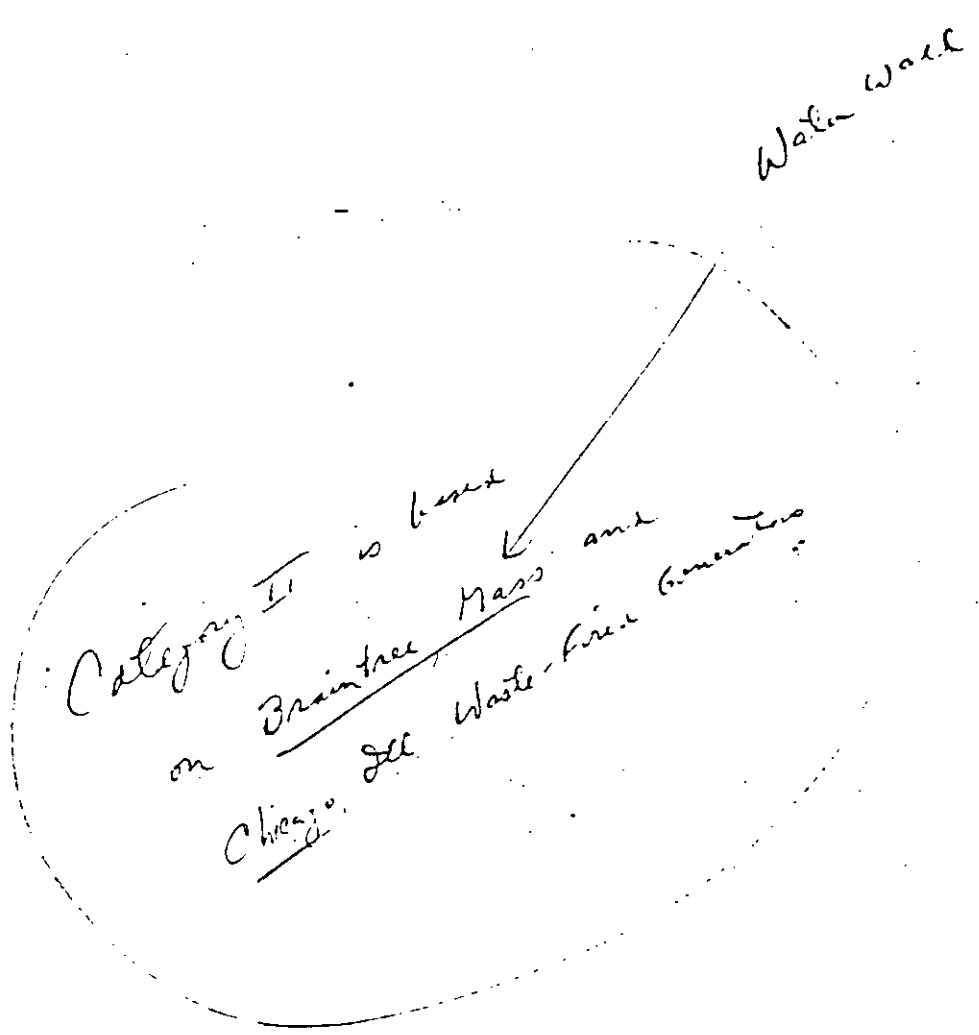 Water Wall
Category II is based
on Braintree Mass and
Chicago, Ill Waste-Fired Generators